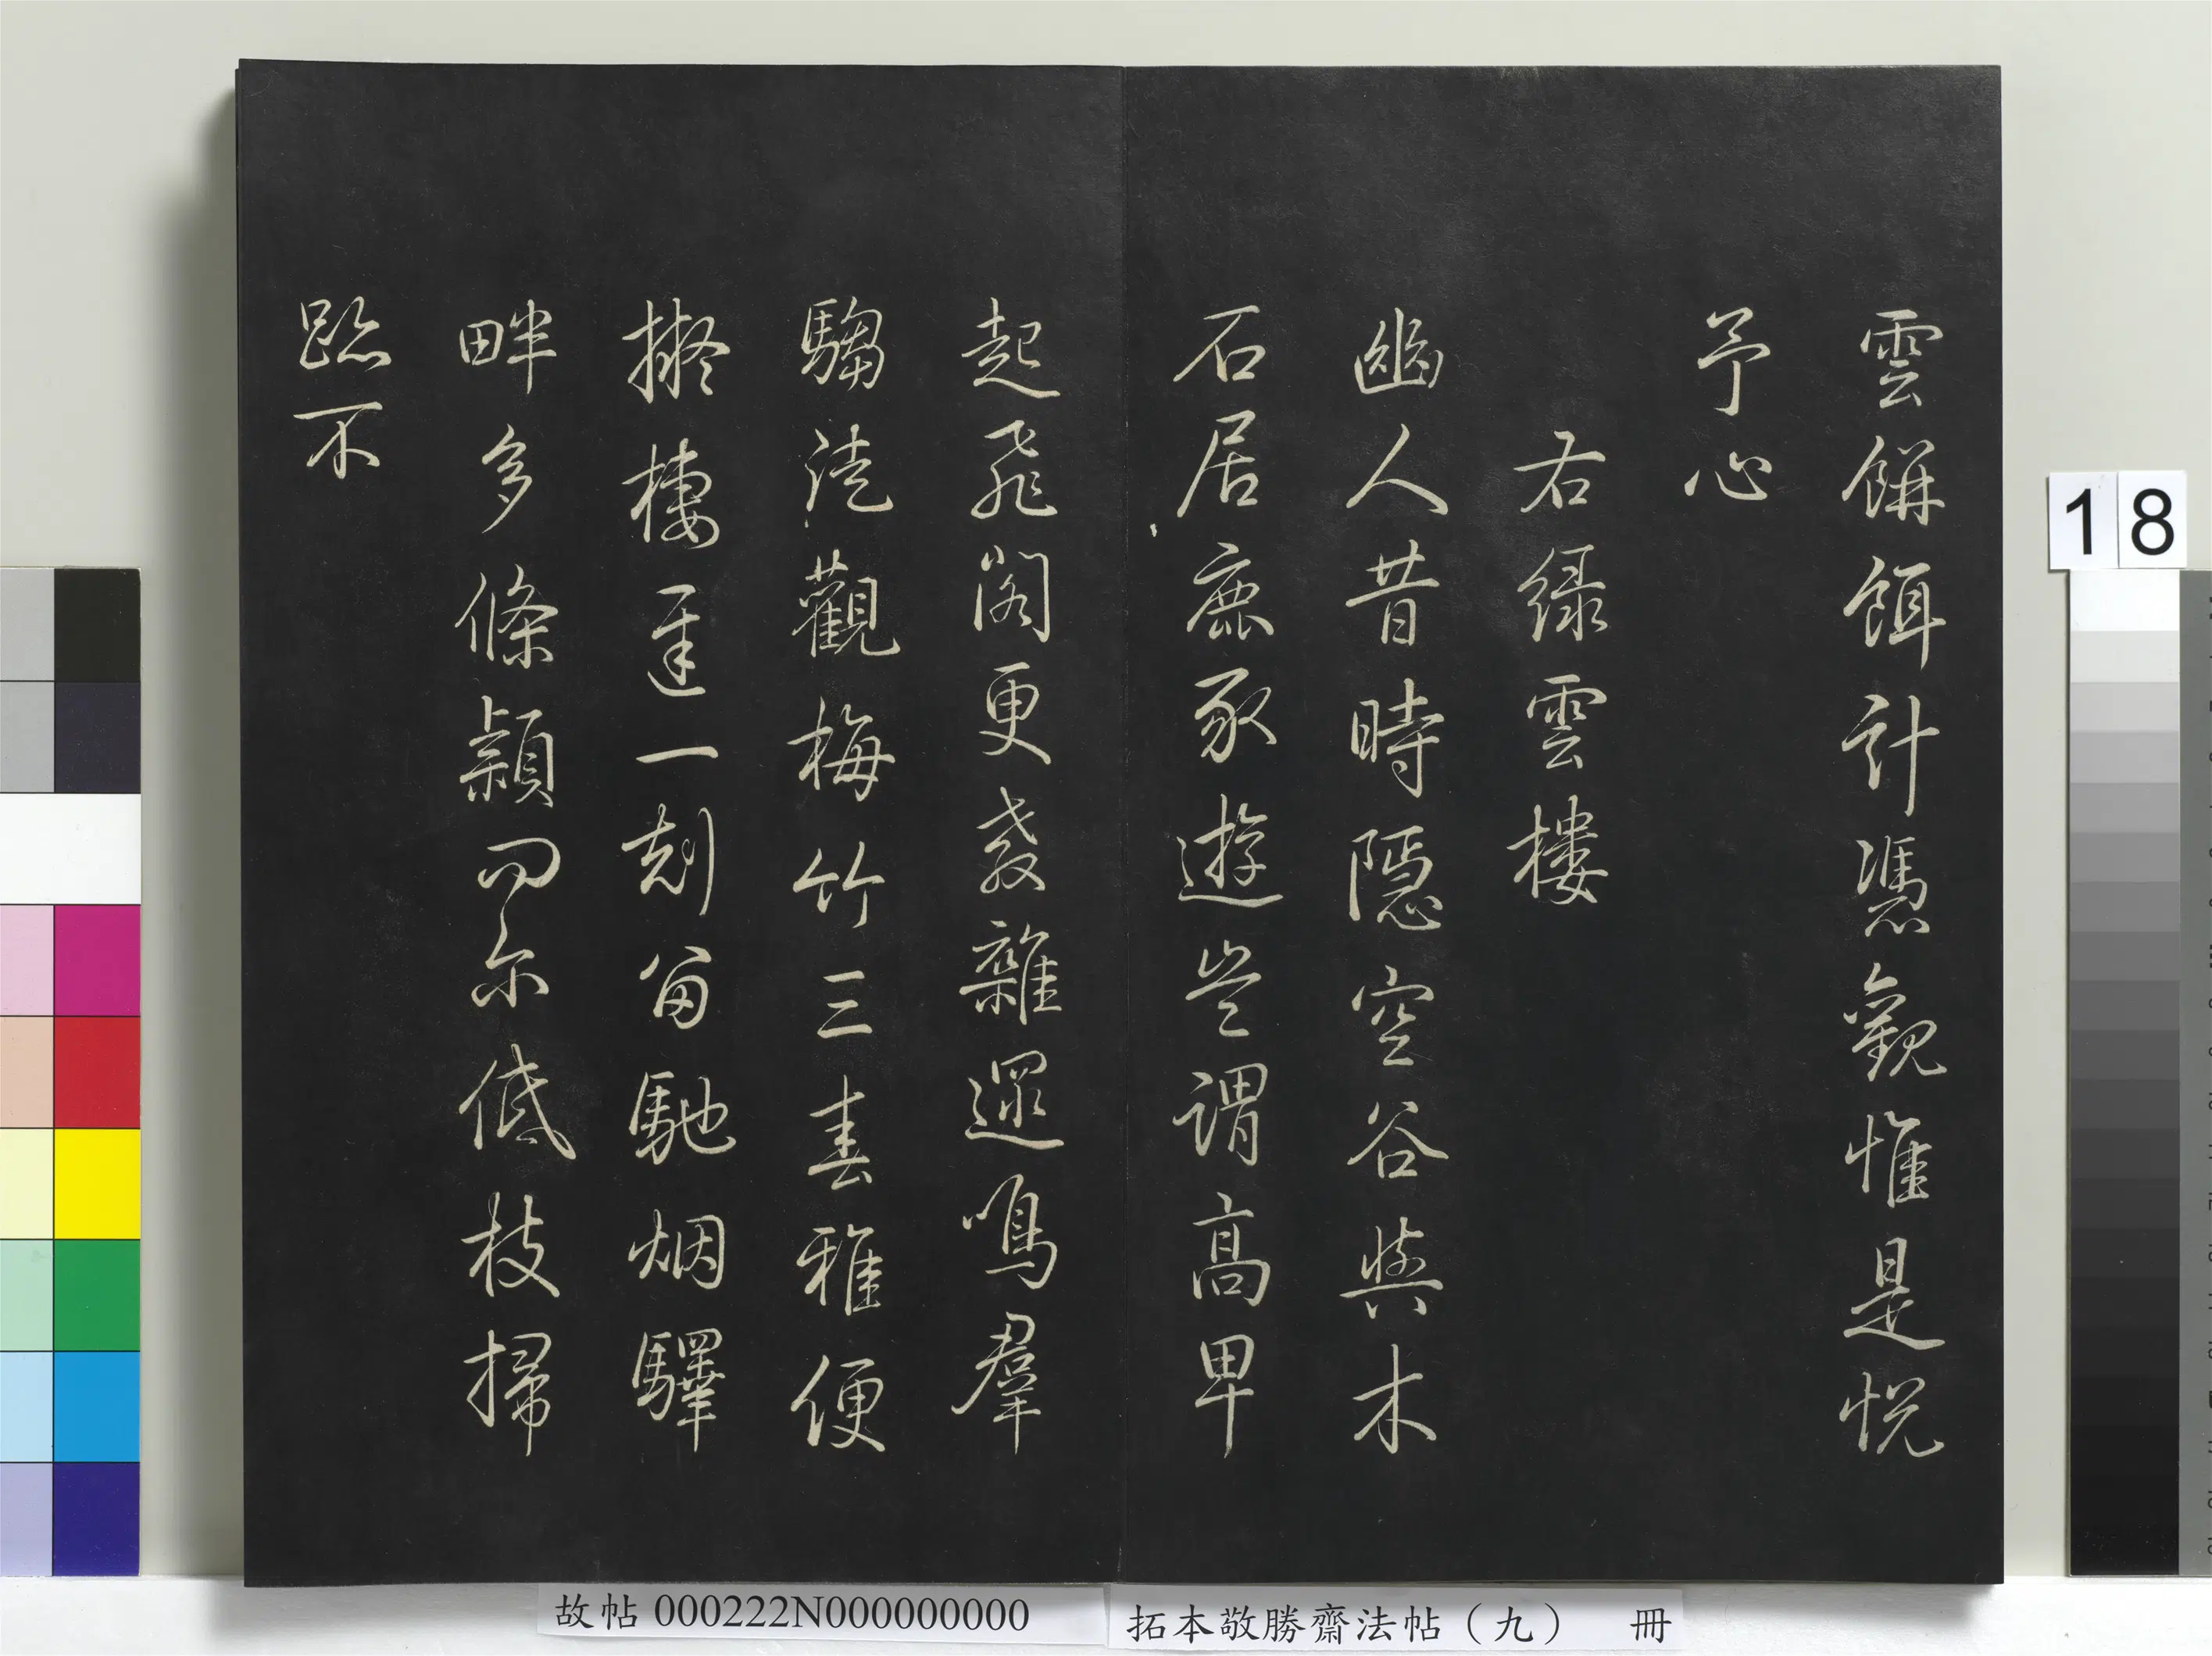 雲餅餌計憑觀惟是悦
予心
右緑雲樓
幽人昔時隱空谷與木
石居鹿豕遊豈謂高卑
起飛閣更教雜遝鳴羣
騶徒觀梅竹三春雅便
擬棲遲一刻留馳烟驛
畔多條穎尔低枝掃
跡不
18
故帖 000222N000000000
拓本敬勝齋法帖（九） 冊